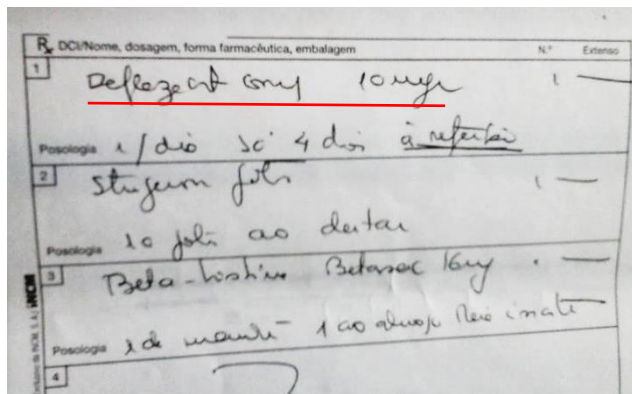 Rx DCI/Nome, dosagem, forma farmacêutica, embalagem N.º Extenso
1
Deflazacort comp 10 mgr 1 —
Posologia 1/dia só 4 dias à refeição
2
Stugeron gotas 1 —
Posologia 10 gotas ao deitar
3
Beta-histina Betaserc 16mg —
Posologia 1 de manhã 1 ao almoço
4
INCM